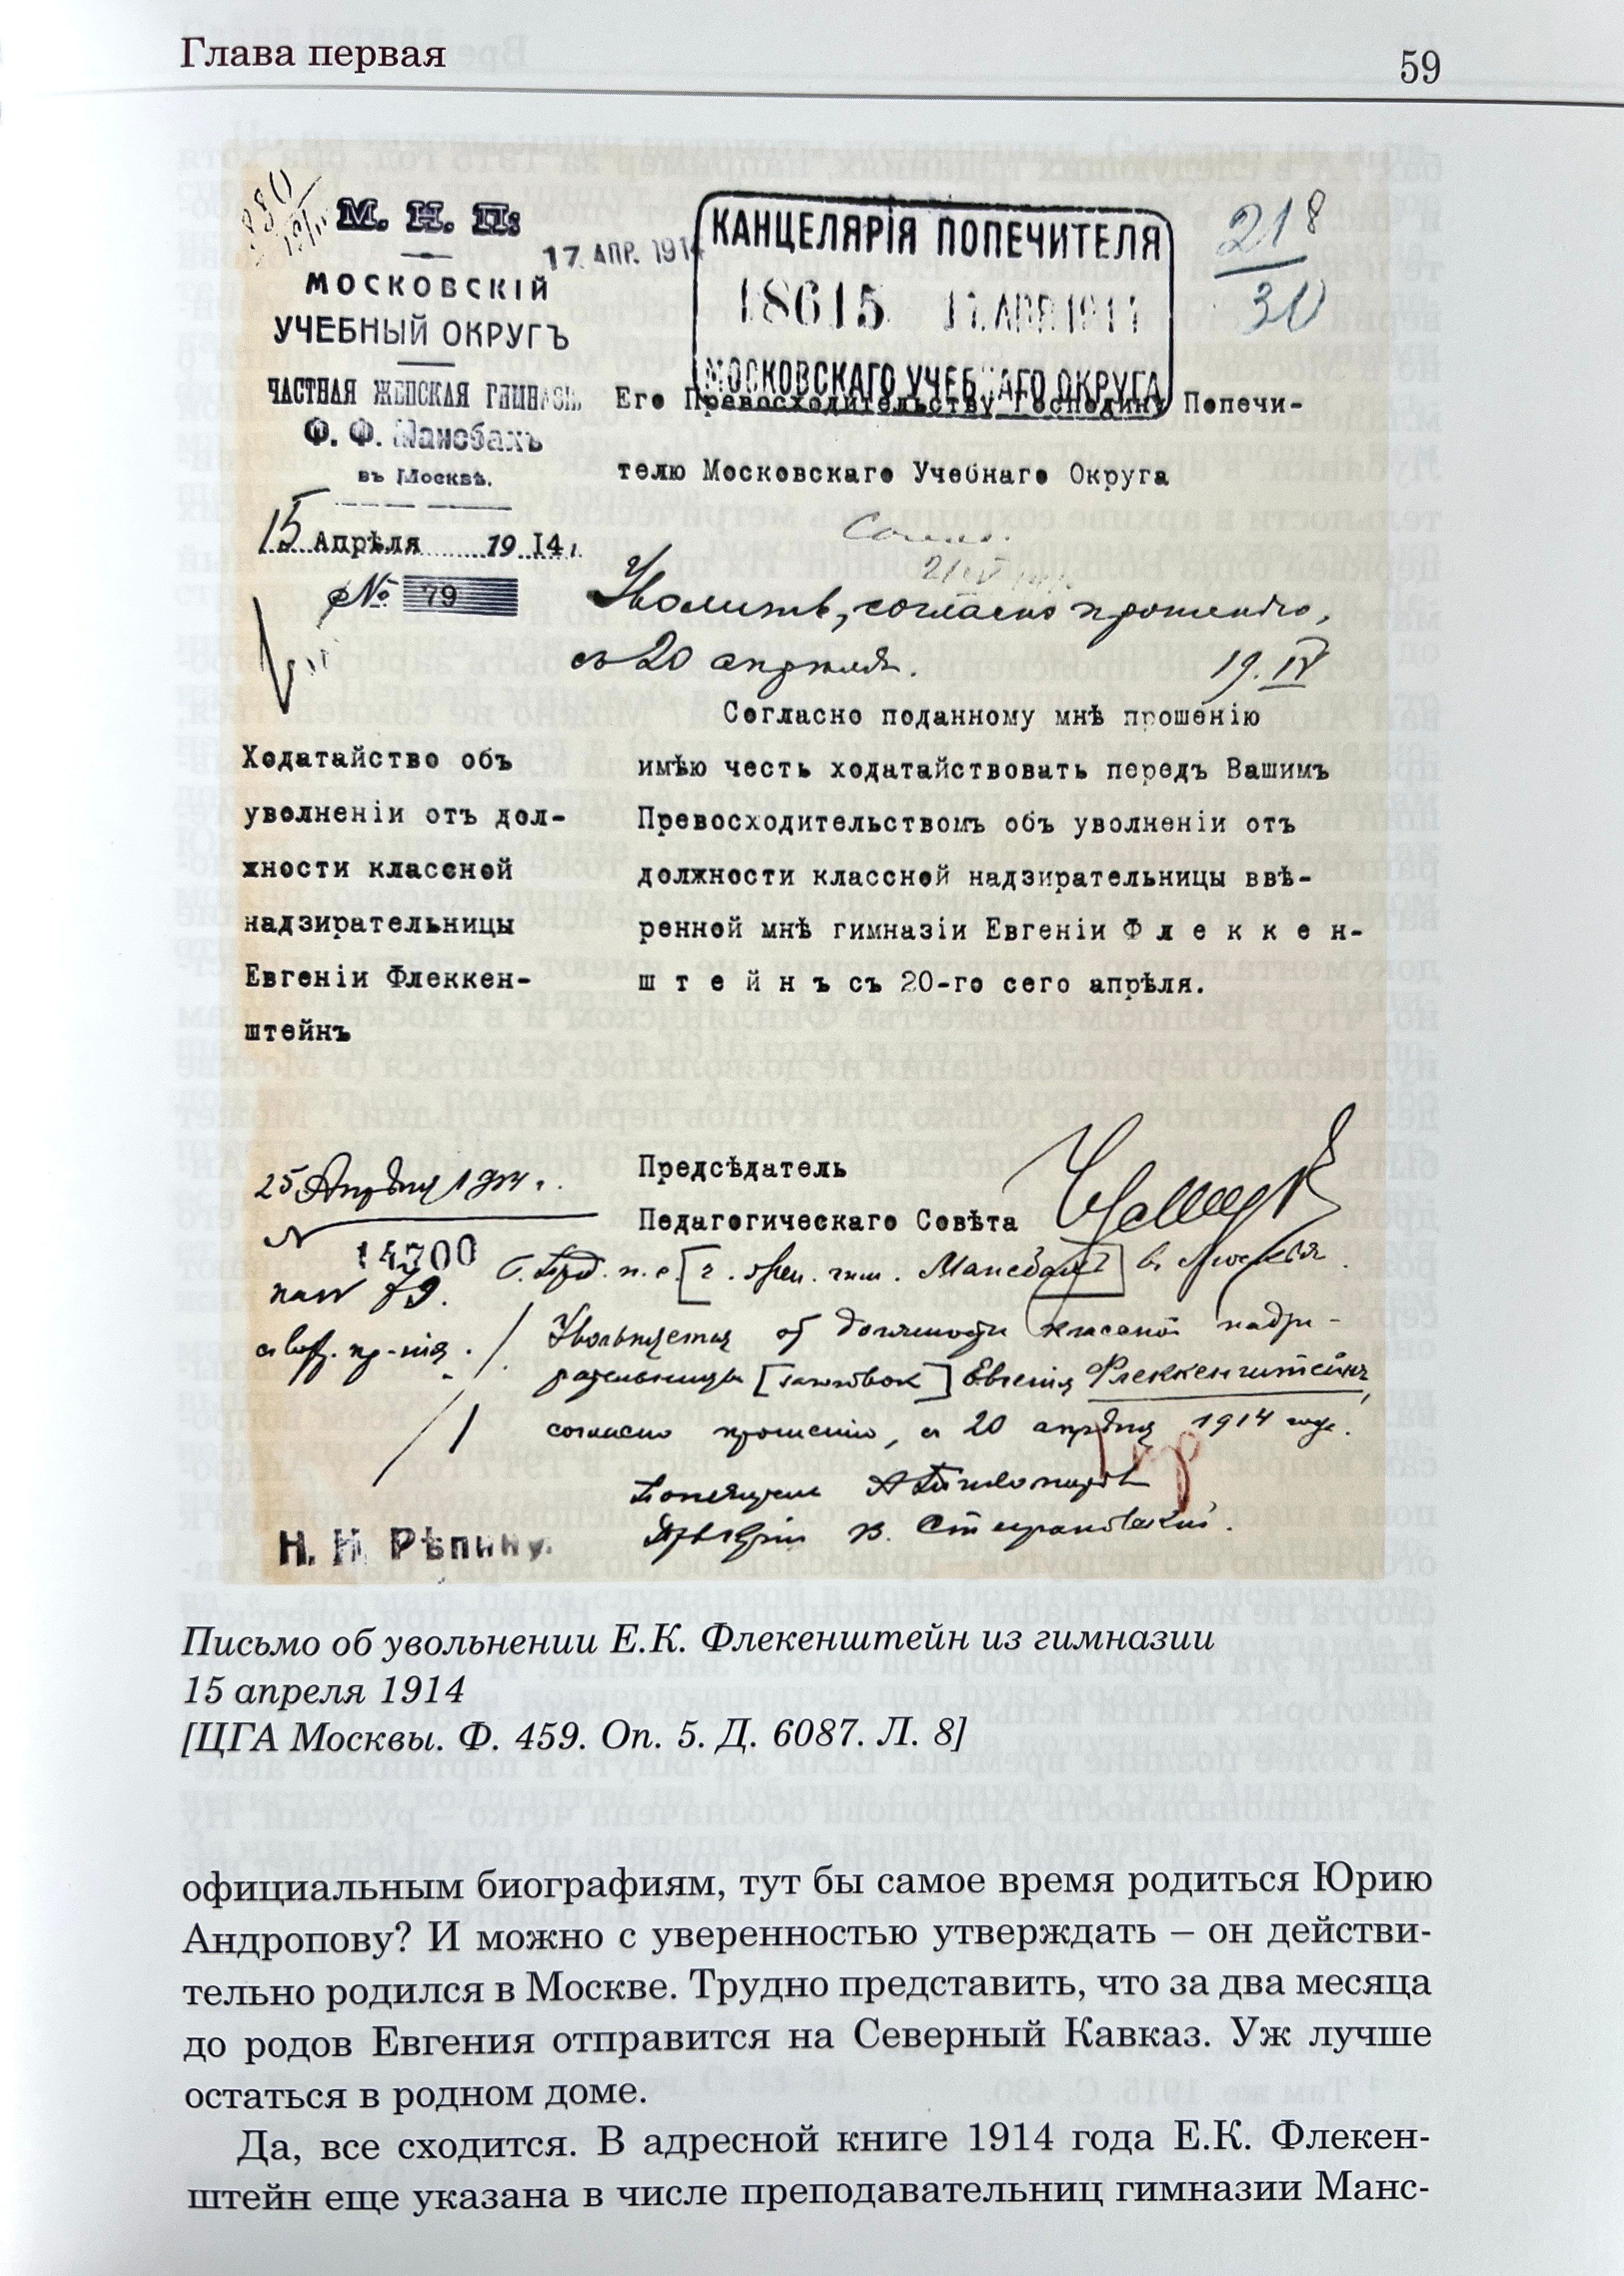 Глава первая
59
М. Н. П.
МОСКОВСКІЙ
УЧЕБНЫЙ ОКРУГЪ
ЧАСТНАЯ ЖЕНСКАЯ ГИМНАЗІЯ
Ф. Ф. Мансбахъ
въ Москвѣ.
15 Апрѣля 1914 г.
№ 79
17. АПР. 1914
КАНЦЕЛЯРІЯ ПОПЕЧИТЕЛЯ
18615 17. АПР. 1914
МОСКОВСКАГО УЧЕБНАГО ОКРУГА
218
30
Его Превосходительству Господину Попечи-
телю Московскаго Учебнаго Округа
Уволить, согласно прошенію,
съ 20 апрѣля. 19. IV
Ходатайство объ
уволненіи отъ дол-
жности классной
надзирательницы
Евгеніи Флеккен-
штейнъ
Согласно поданному мнѣ прошенію
имѣю честь ходатайствовать передъ Вашимъ
Превосходительствомъ объ уволненіи отъ
должности классной надзирательницы ввѣ-
ренной мнѣ гимназіи Евгеніи Ф л е к к е н-
ш т е й н ъ съ 20-го сего апрѣля.
Предсѣдатель
Педагогическаго Совѣта
25 Апрѣля 1914 г.
№ 14700
на № 79.
Г. Прд. п. с. [ч. жен. гим. Мансбахъ] въ Москвѣ.
Увольняется отъ должности классной надзи-
рательницы Евгенія Флеккенштейнъ,
согласно прошенію, съ 20 апрѣля 1914 года.
Попечитель А. Тихомировъ
В. Стефановскій.
Н. Н. Рѣпину.
Письмо об увольнении Е.К. Флекенштейн из гимназии
15 апреля 1914
[ЦГА Москвы. Ф. 459. Оп. 5. Д. 6087. Л. 8]
официальным биографиям, тут бы самое время родиться Юрию
Андропову? И можно с уверенностью утверждать – он действи-
тельно родился в Москве. Трудно представить, что за два месяца
до родов Евгения отправится на Северный Кавказ. Уж лучше
остаться в родном доме.
Да, все сходится. В адресной книге 1914 года Е.К. Флекен-
штейн еще указана в числе преподавательниц гимназии Манс-